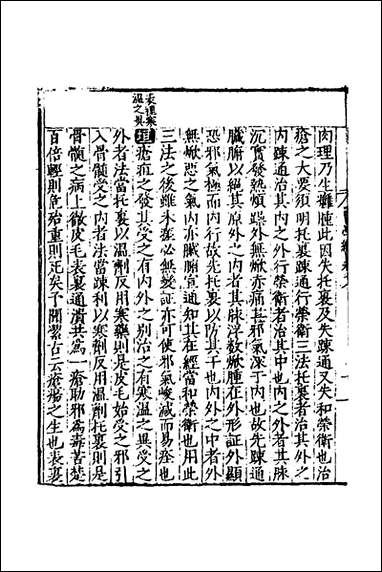 肉理乃生癰腫此因失托裏及失踈通又失和榮衛也治
瘡之大要須明托裏踈通行榮衛三法托裏者治其外之
内踈通治其内之外行榮衛者治其中也内之外者其脉
沉實發熱煩躁外無焮赤痛其邪氣深于内也故先踈通
臟腑以絕其原外之内者其脉浮數焮腫在外形証外顯
恐邪氣極而内行故先托裏以防其干也内外之中者外
無焮惡之氣内亦臟腑宣通知其在經當和榮衛也用此
三法之後雖未瘥必無變証亦可使邪氣峻減而易痊也
表裏寒
温之異
垣瘡疽之發其受之有内外之别治之有寒温之異受之
外者法當托裏以温劑反用寒藥則是皮毛始受之邪引
入骨髓受之内者法當踈利以寒劑反用温劑托裏則是
骨髓之病上徹皮毛表裏通潰共為一瘡助邪為毒苦楚
百倍輕則危殆重則死矣予聞潔古云瘡瘍之生也表裏